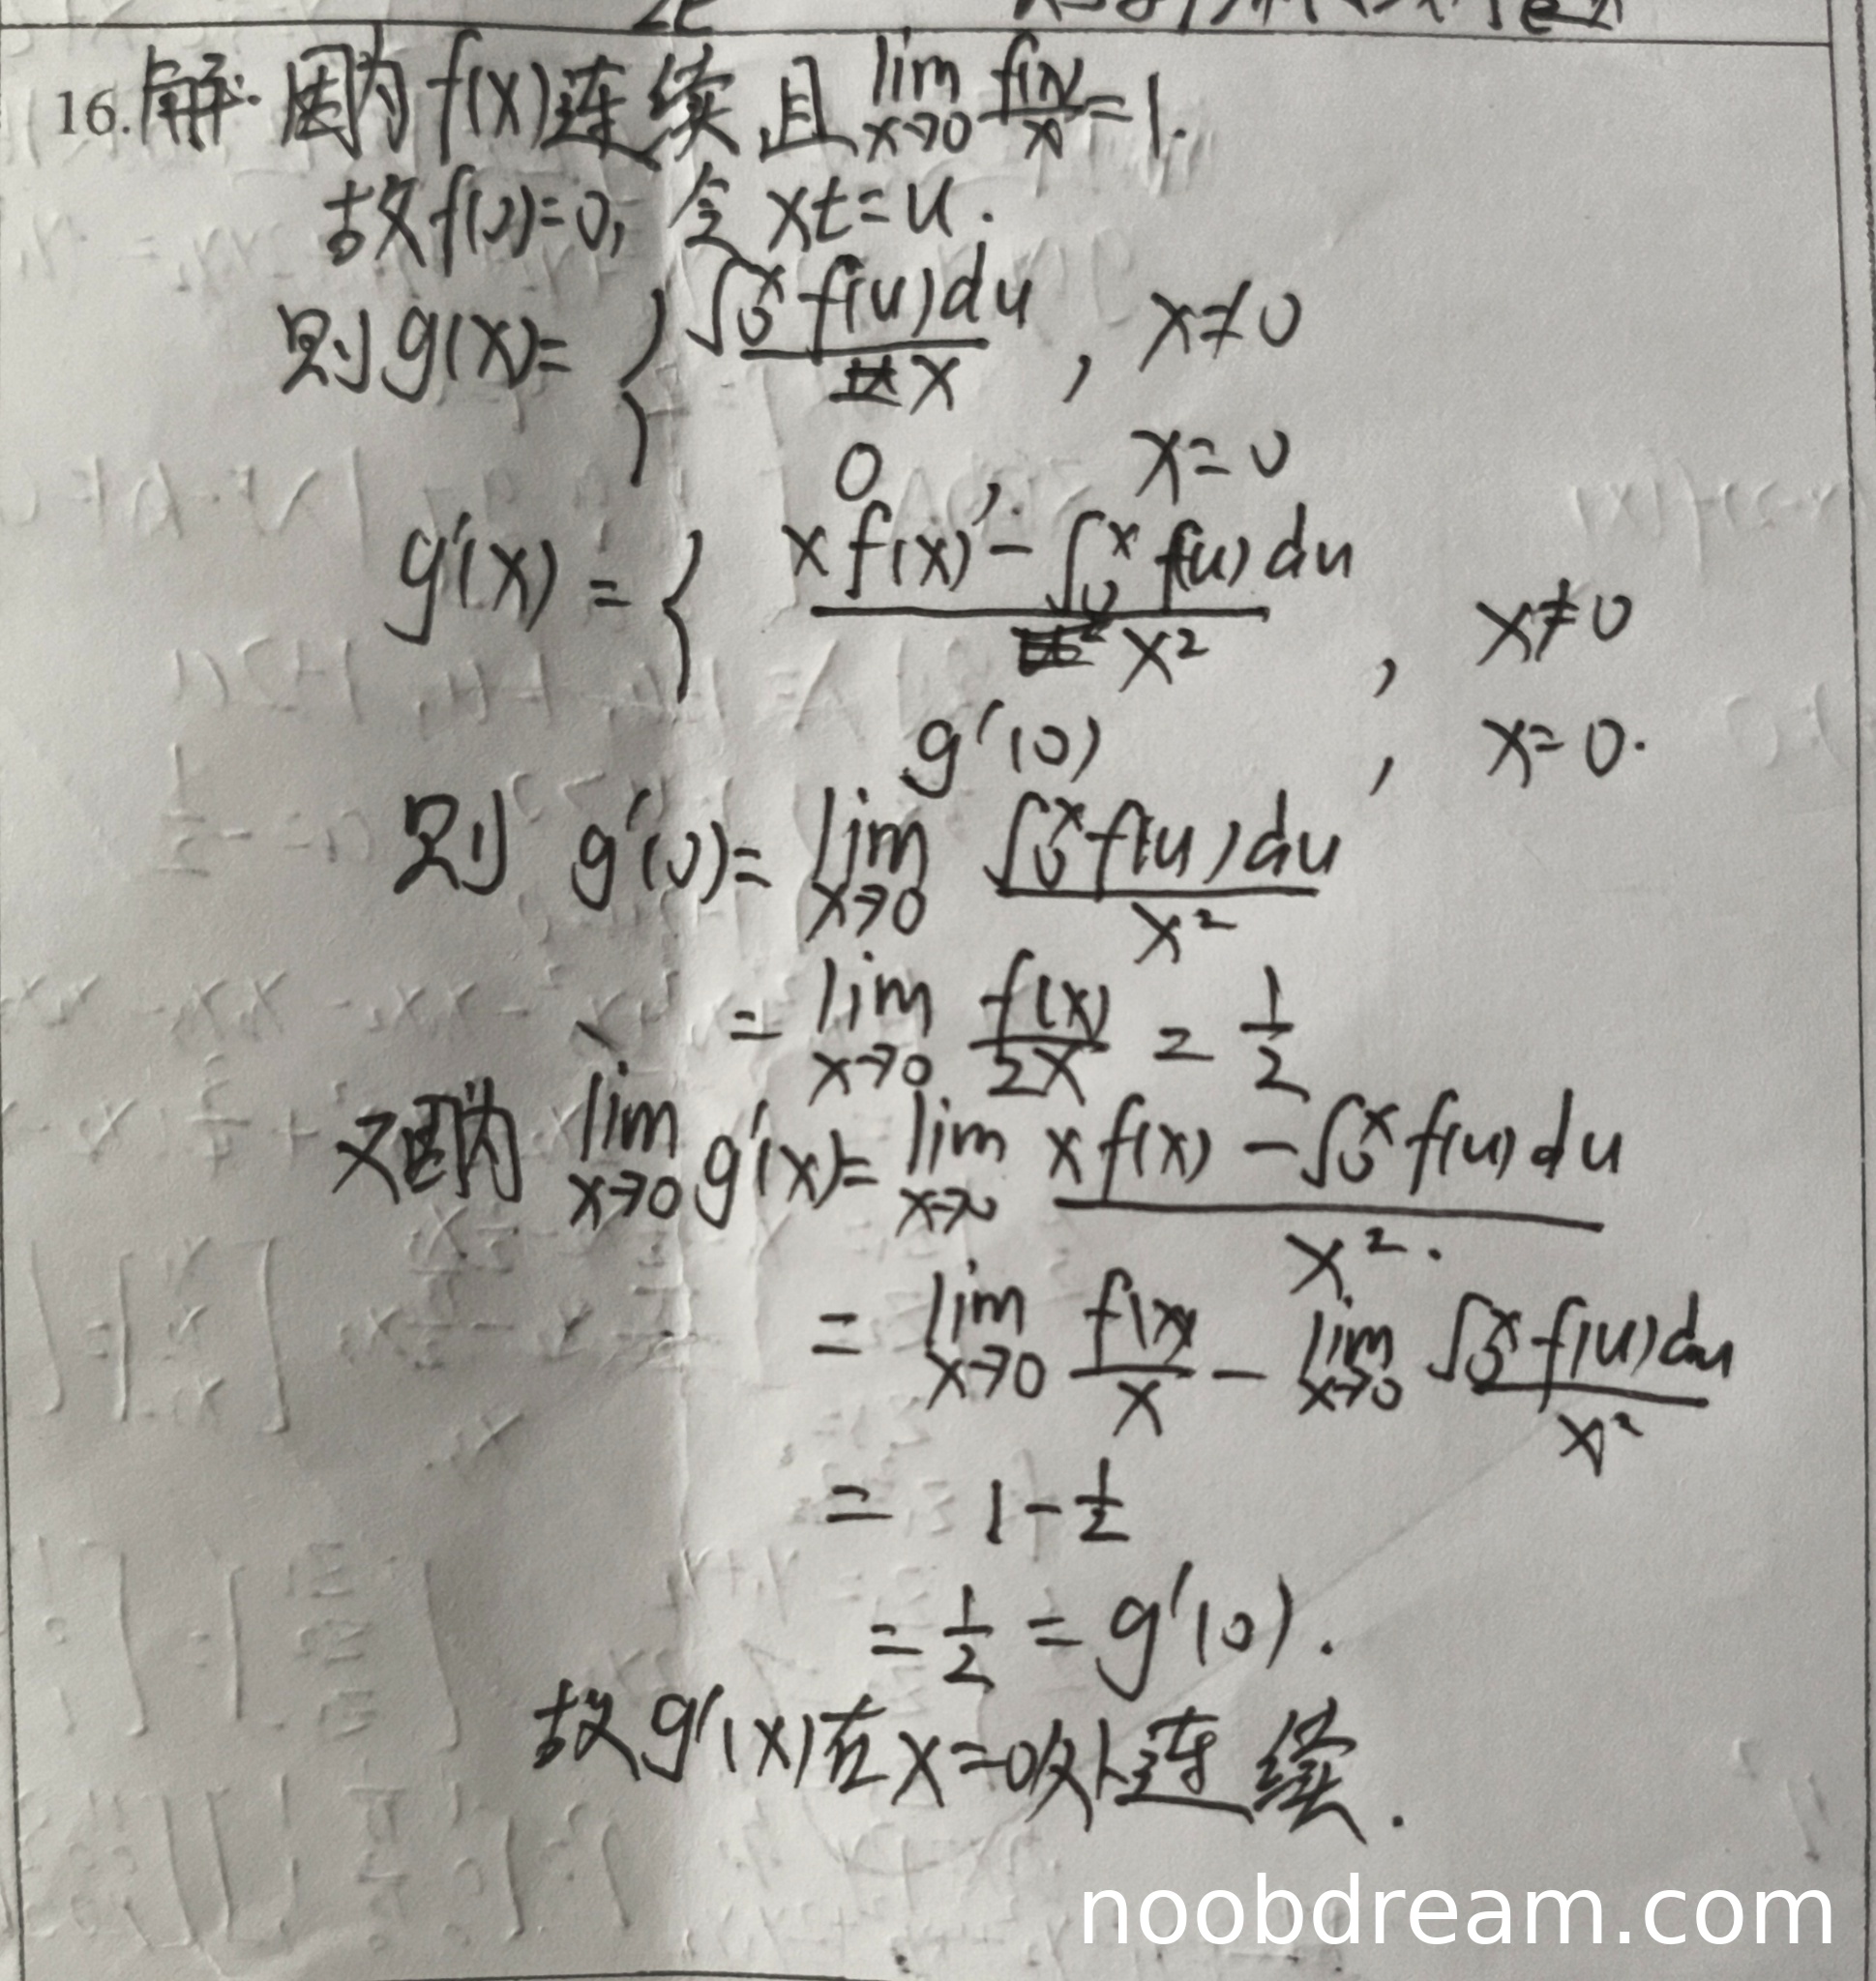 16.解:因为f(x)连续且lim x→0 f(x)/x=1.
故f(0)=0, 令 xt=u.
则g(x)={ ∫₀ˣf(u)du / x , x≠0
0 , x=0
g'(x)={ xf(x)-∫₀ˣf(u)du / x² , x≠0
g'(0) , x=0.
则 g'(0)=lim x→0 ∫₀ˣf(u)du / x²
=lim x→0 f(x)/2x = 1/2
又因为 lim x→0 g'(x)=lim x→0 xf(x)-∫₀ˣf(u)du / x².
=lim x→0 f(x)/x - lim x→0 ∫₀ˣf(u)du / x²
= 1-1/2
=1/2=g'(0).
故g'(x)在x=0处连续.
noobdream.com